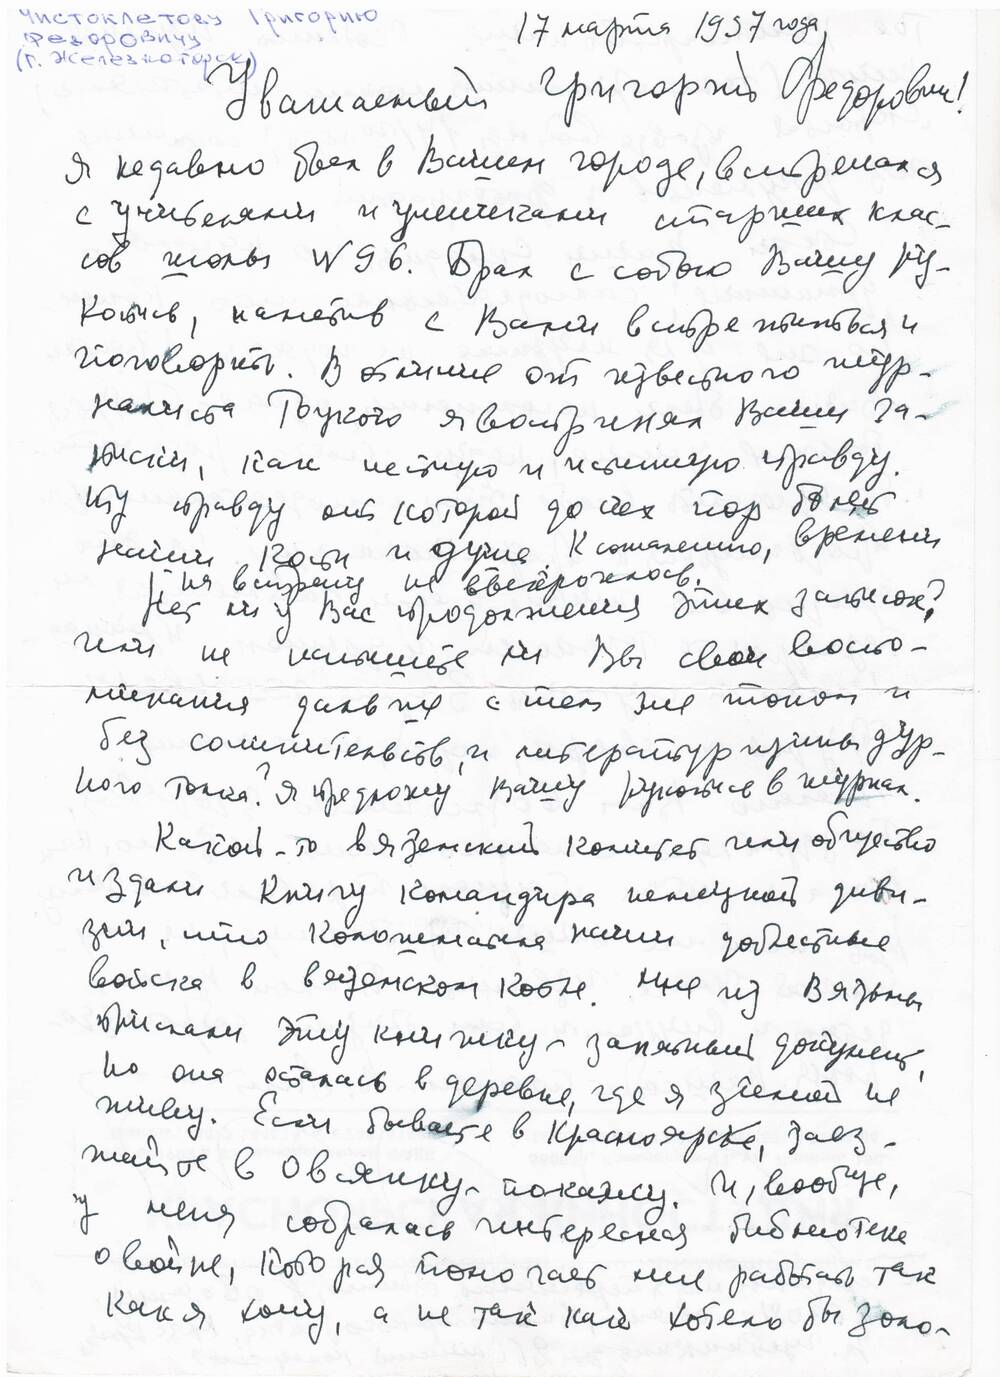 Чистоклетову Григорию
Федоровичу
(г. Железногорск)
17 марта 1997 года
Уважаемый Григорий Федорович!
Я недавно был в Вашем городе, встречался
с учителями и учениками старших клас-
сов школы №96. Брал с собою Вашу ру-
копись, наметив с Вами встретиться и
поговорить. В отличие от известного жур-
налиста я воспринял Ваши за-
писки, как честную и истинную правду.
Ту правду от которой до сих пор болят
наши кости и душа. К сожалению, времени
на встречу не выкроилось.
Нет ли у Вас продолжения этих записок?
или не напишете ли Вы свои воспо-
минания дальше с тем же тоном и
без сочинительств, и литературщины дур-
ного тона? Я предложу Вашу рукопись в журнал.
Какой-то вяземский комитет или общество
издали книгу командира немецкой диви-
зии, что колошматила наши доблестные
войска в вяземском котле. Мне из Вязьмы
прислали эту книжку - занятный документ,
но она осталась в деревне, где я зимой не
живу. Если бываете в Красноярске, заез-
жайте в Овсянку - покажу. И, вообще,
у меня собралась интересная библиотека
о войне, которая помогает мне работать так
как я хочу, а не так как хотело бы